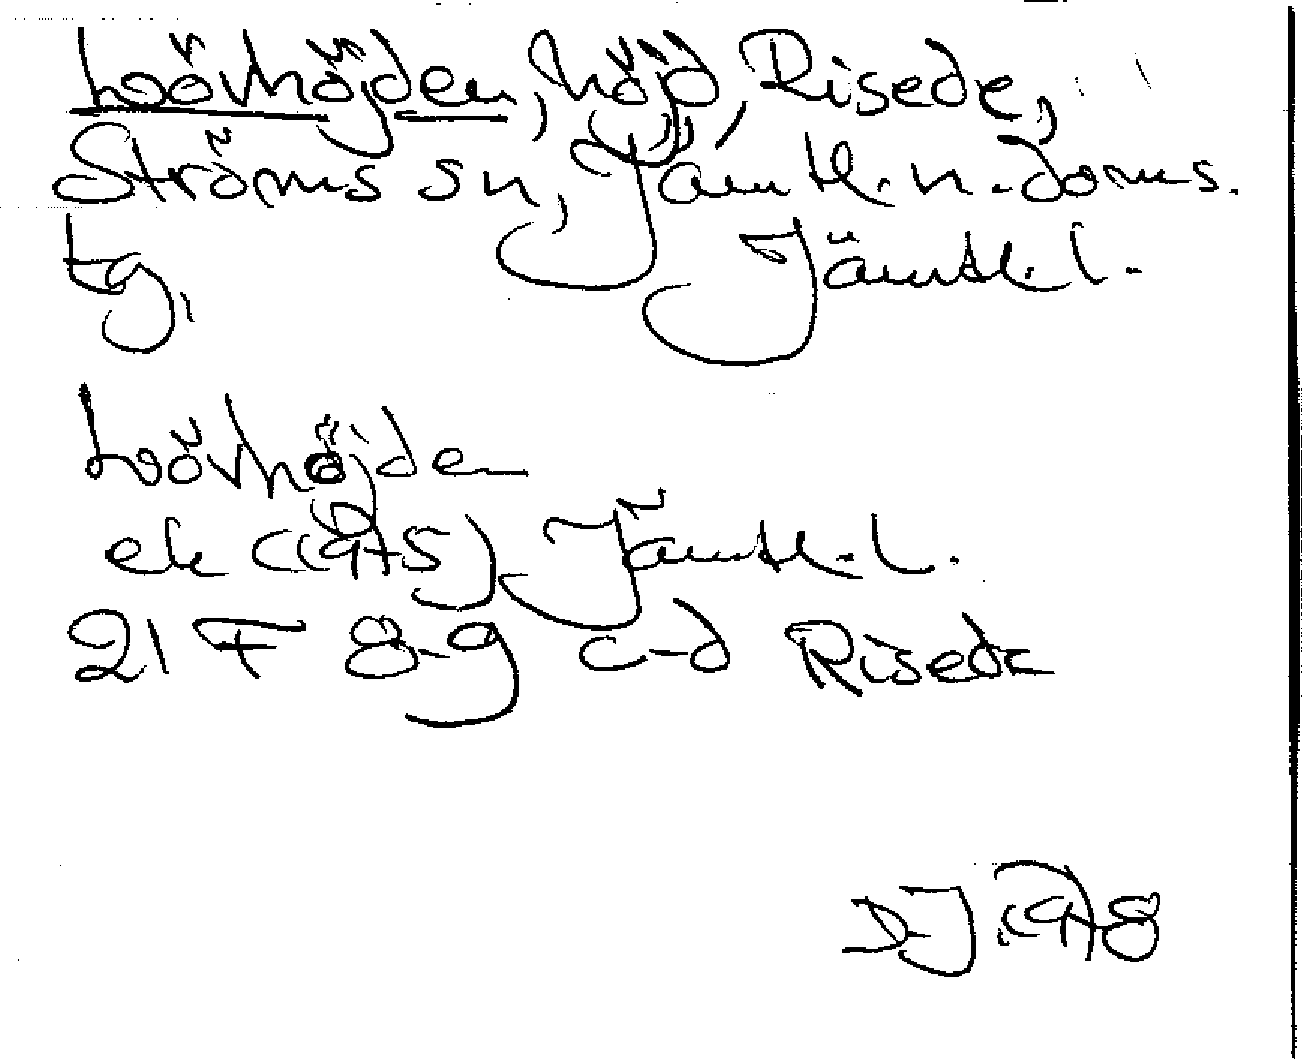 Lövhöjden, höjd, Risede,
Ströms sn, Jämtl. n. doms.
tg, Jämtl. l.
Lövhöjden
ek (1975) Jämtl. l.
21 F 8-9 c-d Risede
DJ 1978